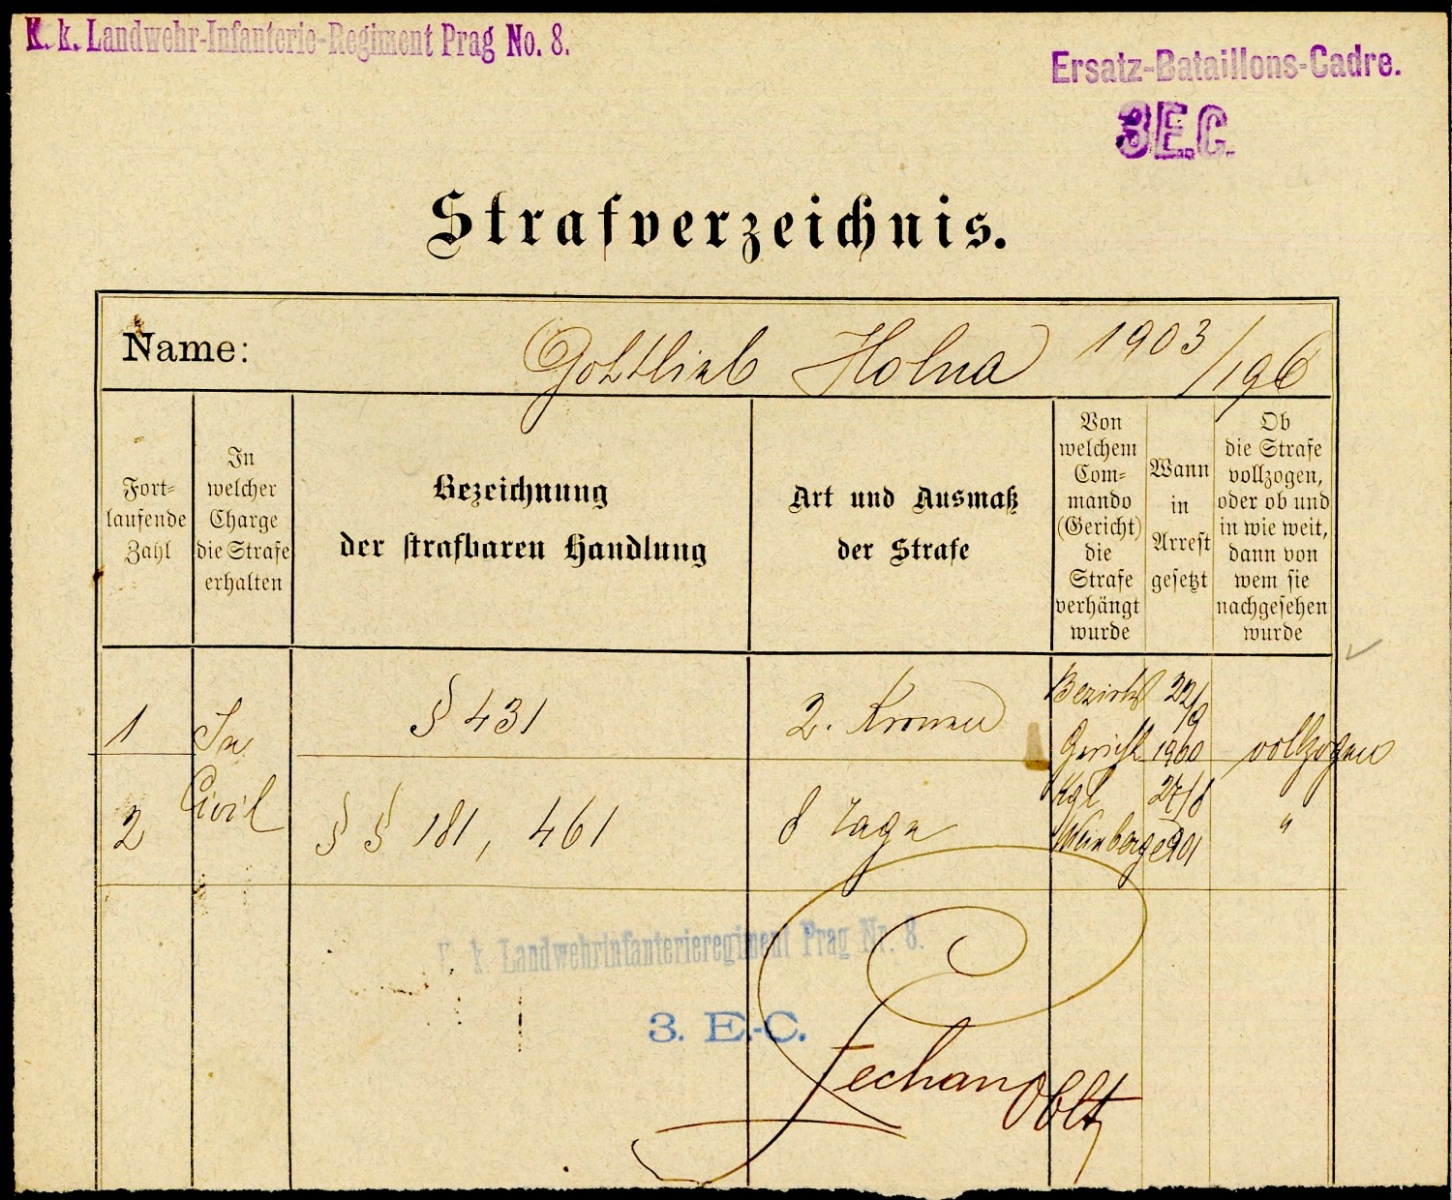 K. k. Landwehr-Infanterie-Regiment Prag No. 8.
Ersatz-Bataillons-Cadre.
3 E.C.
Strafverzeichnis.
Name: Gottlieb Holna 1903/196
Fort-
laufende
Zahl
In
welcher
Charge
die Strafe
erhalten
Bezeichnung
der strafbaren Handlung
Art und Ausmaß
der Strafe
Von
welchem
Com-
mando
(Gericht)
die
Strafe
verhängt
wurde
Wann
in
Arrest
gesetzt
Ob
die Strafe
vollzogen,
oder ob und
in wie weit,
dann von
wem sie
nachgesehen
wurde
1 In § 431 2. Kronen Bezirks Gericht 22/9 1900 vollzogen
2 Civil § § 181, 461 8 Tage Kgl Weinberge 27/8 901 "
K. k. Landwehrinfanterieregiment Prag Nr. 8.
3. E.-C.
Oblt